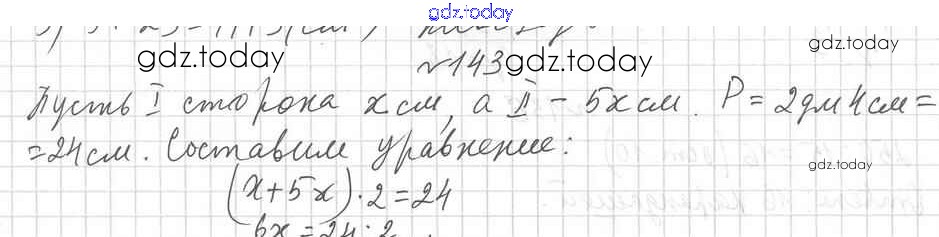 gdz.today
gdz.today
№143 gdz.today
gdz.today
Пусть I сторона x см, а II - 5x см. P = 2дм 4см =
= 24 см. Составим уравнение:
gdz.today
(x+5x)·2=24
6x = 24:2